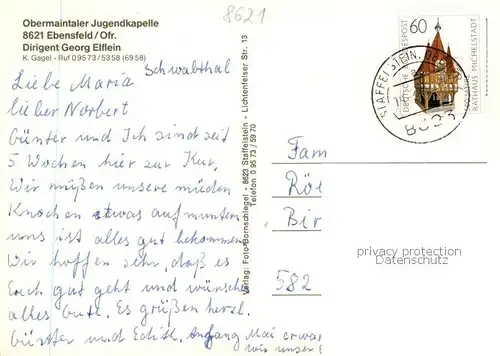 Obermaintaler Jugendkapelle
8621 Ebensfeld / Ofr.
Dirigent Georg Elflein
K. Gagel - Ruf 0 95 73 / 53 58 (69 58)
8621
Schwabthal
Liebe Maria
lieber Norbert
Günter und Ich sind seit
5 Wochen hier zur Kur,
Wir müßen unsere müden
Knochen etwas aufmuntern
uns ist alles gut bekommen
Wir hoffen sehr, daß es
Euch gut geht und wünschen
alles Gute. Es grüßen herzl.
Günter und Edith. Anfang Mai erwar
wir unser
Verlag: Foto-Bornschlegel - 8623 Staffelstein - Lichtenfelser Str. 13
Telefon 0 95 73 / 59 70
DEUTSCHE BUNDESPOST
60
RATHAUS MICHELSTADT
STAFFELSTEIN
8623
Fam
Röl
Bir
582
privacy protection
Datenschutz